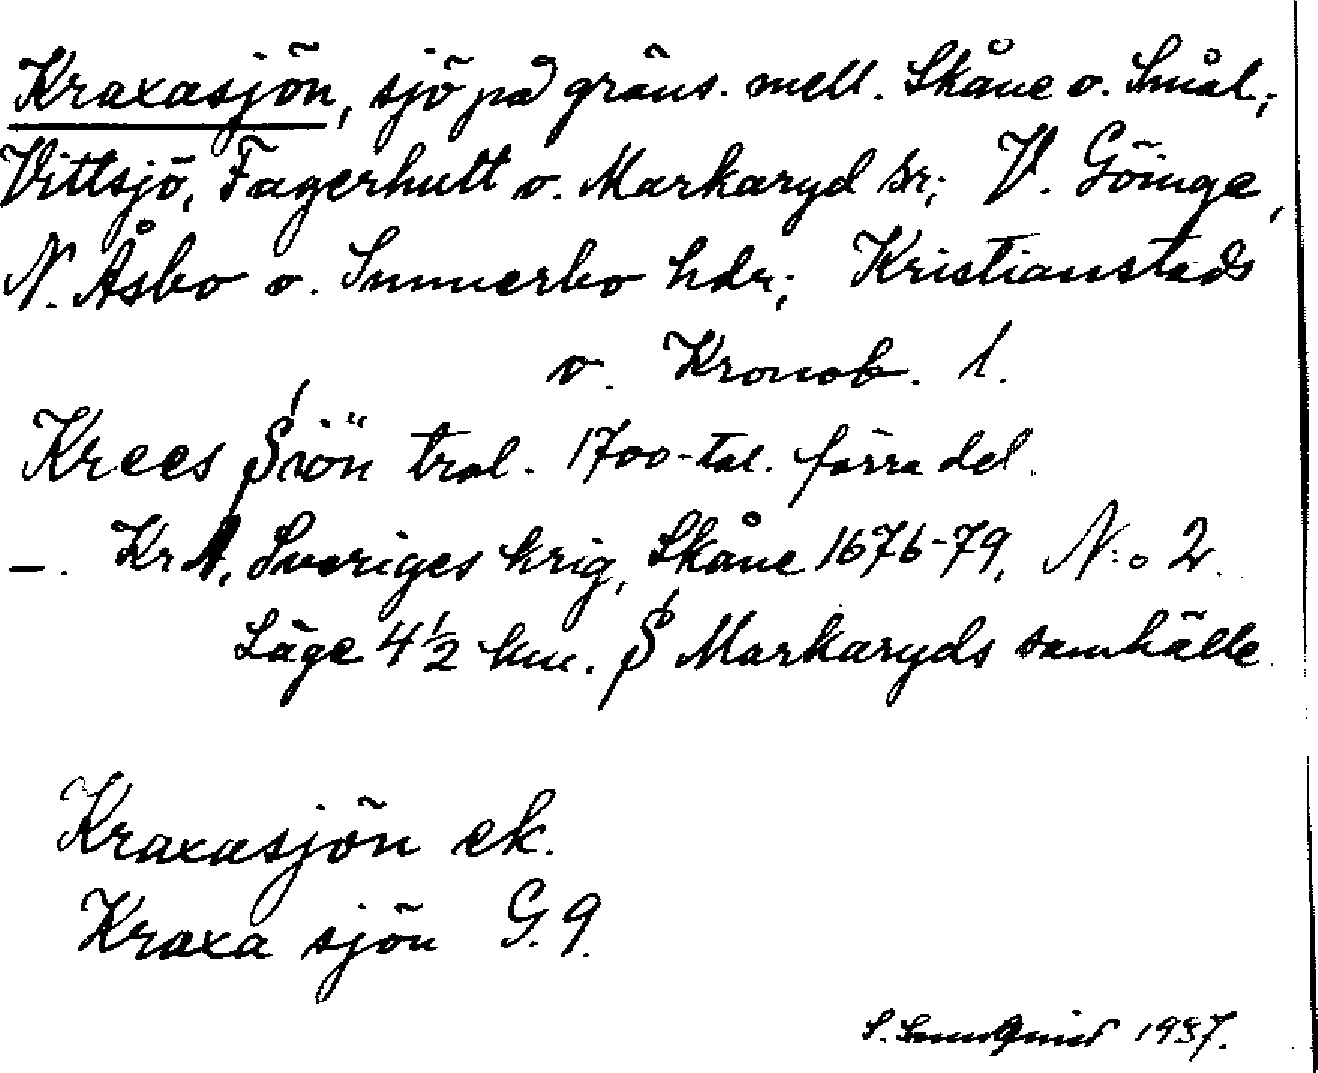 Kraxasjön, sjö på gräns. mell. Skåne o. Smål.;
Vittsjö, Fagerhult o. Markaryd sn; V. Göinge,
N. Åsbo o. Sunnerbo hdr; Kristianstads
o. Kronob. l.
Krees Siön trol. 1700-tal. förra del.
–. KrA, Sveriges krig, Skåne 1676-79, N:o 2.
Läge 4½ km. S Markaryds samhälle.
Kraxasjön ek.
Kraxa sjön G. 9.
S. 1937.